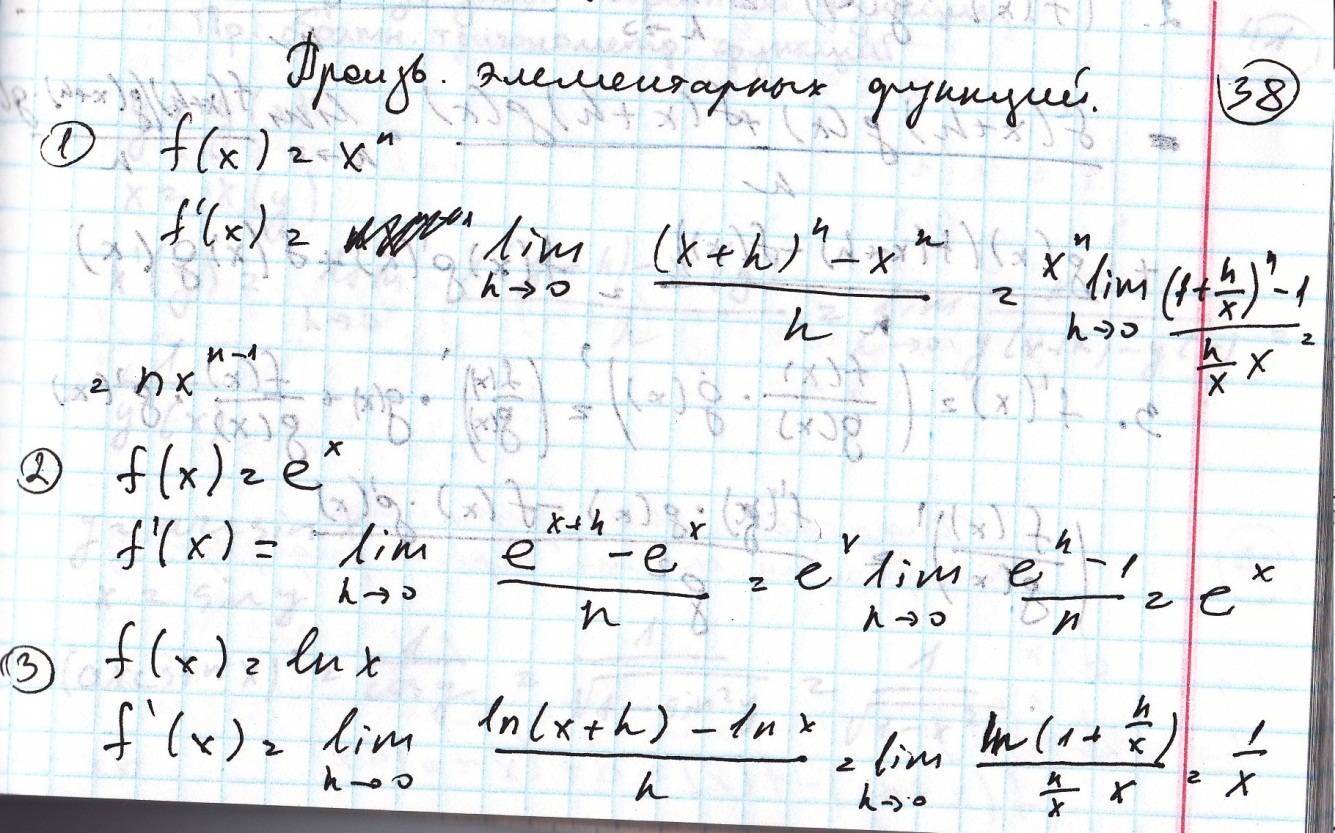 Произв. элементарных функций. 38
① f(x) = xⁿ
f'(x) = lim_{h→0} ((x+h)ⁿ - xⁿ)/h = xⁿ lim_{h→0} ((1+h/x)ⁿ - 1)/(h/x x) =
= nxⁿ⁻¹
② f(x) = eˣ
f'(x) = lim_{h→0} (e^{x+h} - eˣ)/h = eˣ lim_{h→0} (eʰ - 1)/h = eˣ
③ f(x) = ln x
f'(x) = lim_{h→0} (ln(x+h) - ln x)/h = lim_{h→0} ln(1+h/x)/(h/x x) = 1/x